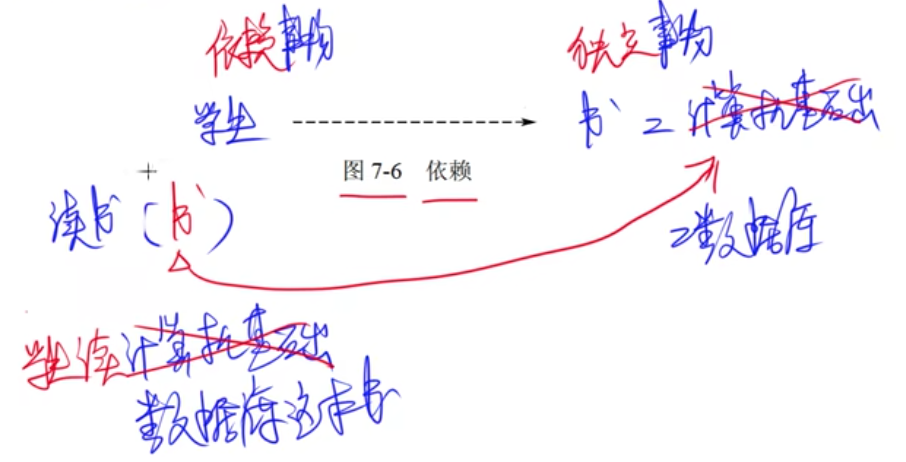 依赖事物 独立事物
学生 书 = 计算机基础
+ 图 7-6 依赖
读书（书） = 数据库
学生读计算机基础
数据库这本书